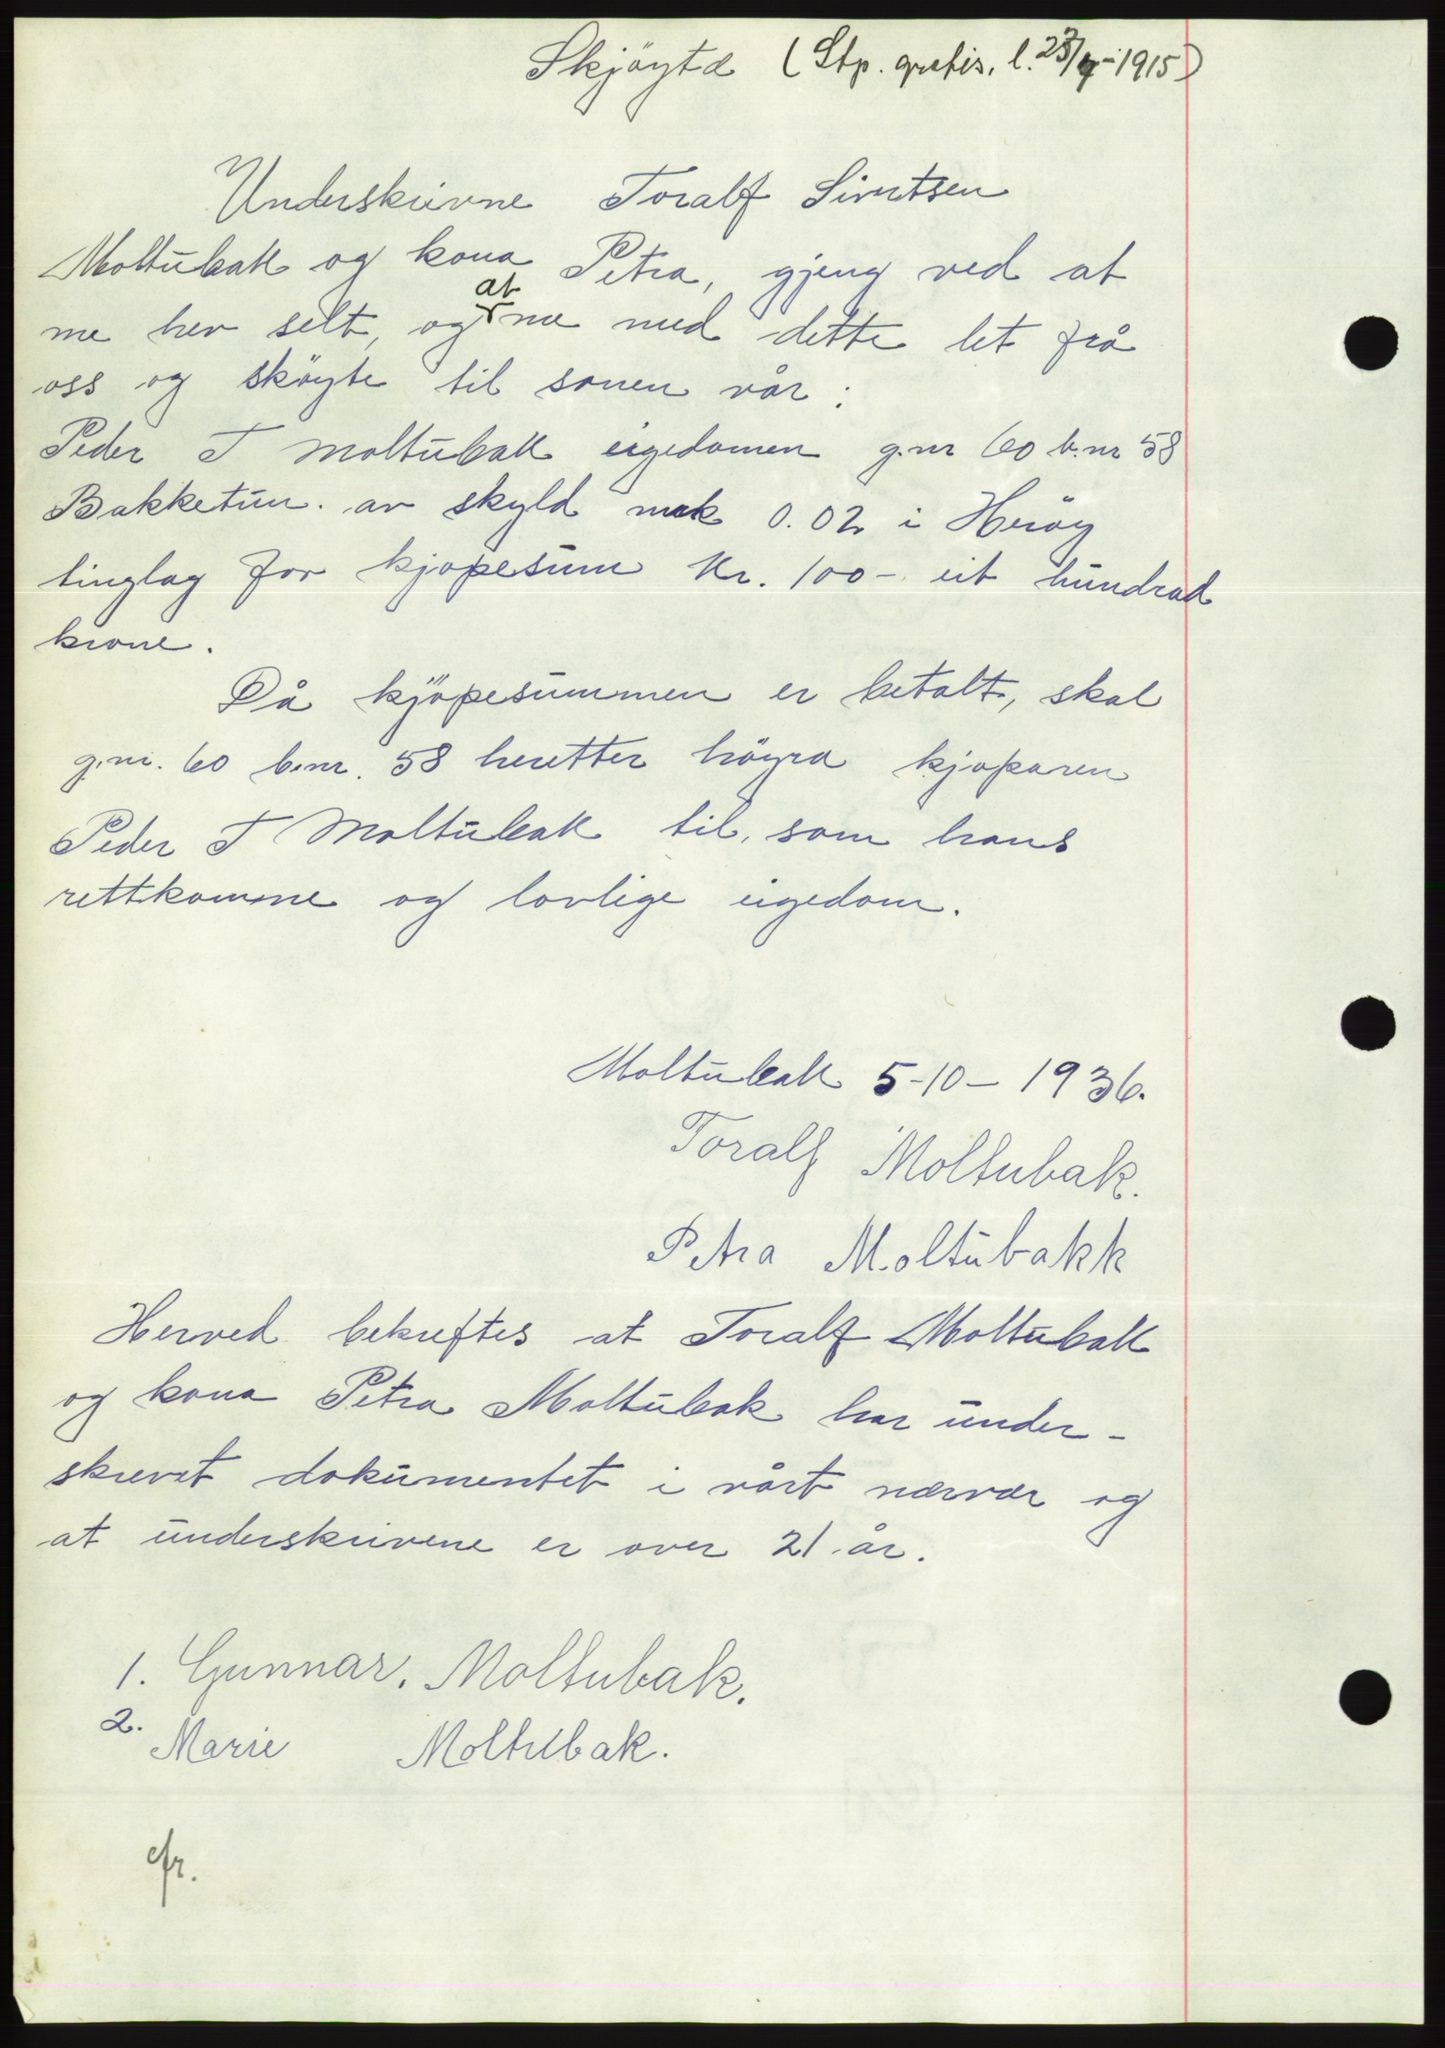 Skjöyta (Stp. gratis, l. 23/7-1915)
Underskrivne Toralf Sivertsen
Moltubakk og kona Petra, gjeng ved at
me hev selt, og at me med dette let frå
oss og sköyte til sonen vår:
Peder T Moltubakk eigedomen g.nr 60 b.nr 58
Bakketun. av skyld mrk 0.02 i Heröy
tinglag for kjøpesum Kr. 100- eit hundrad
krone.
Då kjöpesummen er betalt, skal
g.nr. 60 b.nr. 58 heretter högra kjøparen
Peder T Moltubakk til, som hans
rettkomne og lovlige eigedom.
Moltubakk 5-10-1936.
Toralf Moltubak.
Petra Moltubakk
Herved bekreftes at Toralf Moltubakk
og kona Petra Moltubak har under-
skrevet dokumentet i vårt nærvær og
at underskrivene er over 21 år.
1. Gunnar. Moltubak.
2. Marie Moltubak.
cfr.